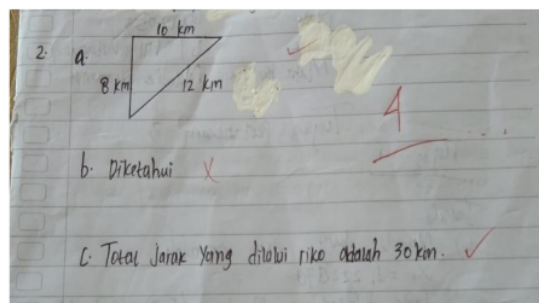 10 km
2. a.
8 km 12 km
4
b. Diketahui X
C. Total Jarak yang dilalui riko adalah 30 km.